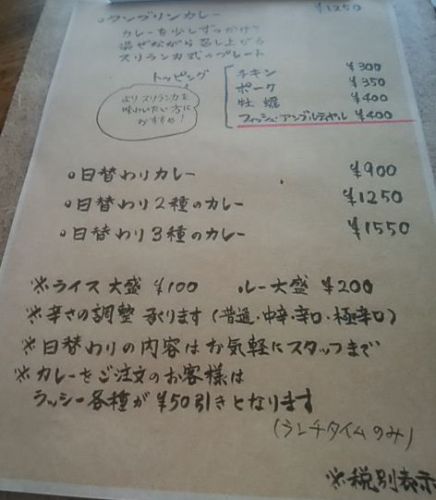 ○ワンプリンカレー ¥1250
カレーを少しずつかけて
混ぜながら召し上がる
スリランカ式のプレート
トッピング
よりスリランカを
味わいたい方に
おすすめ!
チキン ¥300
ポーク ¥350
牡蠣 ¥400
フィッシュアンブルティヤル ¥400
○日替わりカレー ¥900
○日替わり2種のカレー ¥1250
○日替わり3種のカレー ¥1550
※ライス大盛 ¥100 ルー大盛 ¥200
※辛さの調整 承ります(普通・中辛・辛口・極辛口)
※日替わりの内容はお気軽にスタッフまで
※カレーをご注文のお客様は
ラッシー各種が¥50引きとなります
(ランチタイムのみ)
※税別表示